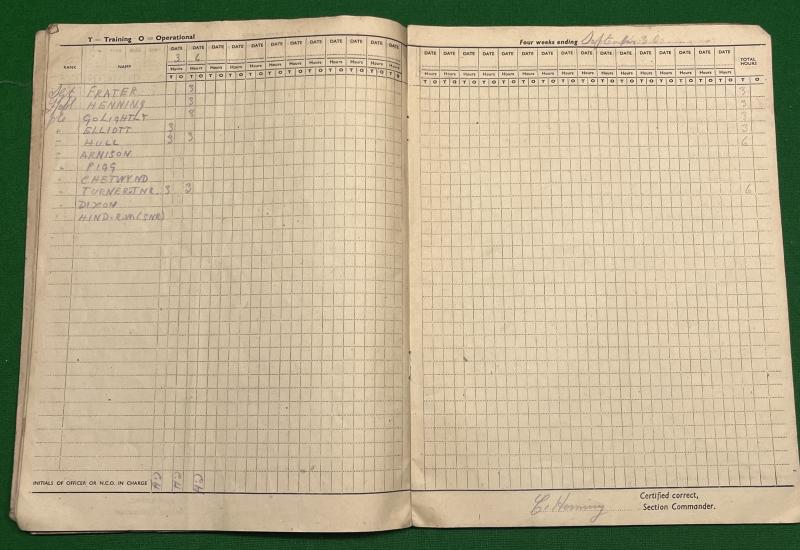 T — Training O — Operational
Four weeks ending September 30
DATE DATE DATE DATE DATE DATE DATE DATE DATE DATE DATE DATE
DATE DATE DATE DATE DATE DATE DATE DATE DATE DATE DATE DATE DATE DATE DATE DATE
3 6
RANK NAME
TOTAL HOURS
Hours Hours Hours Hours Hours Hours Hours Hours Hours Hours Hours Hours
Hours Hours Hours Hours Hours Hours Hours Hours Hours Hours Hours Hours Hours Hours Hours Hours
T O T O T O T O T O T O T O T O T O T O T O T O
T O T O T O T O T O T O T O T O T O T O T O T O T O T O T O T O T O
Sgt FRATER 3 3
HENNING 3 3
Pte GOLIGHTLY 3 3
" ELLIOTT 3 3
" HULL 3 3 6
" ARNISON
" PIGG
" CHETWYND
" TURNER JNR. 3 3 6
" DIXON
" HIND. R.W. (SNR)
INITIALS OF OFFICER OR N.C.O. IN CHARGE
C. Henning
Certified correct,
Section Commander.